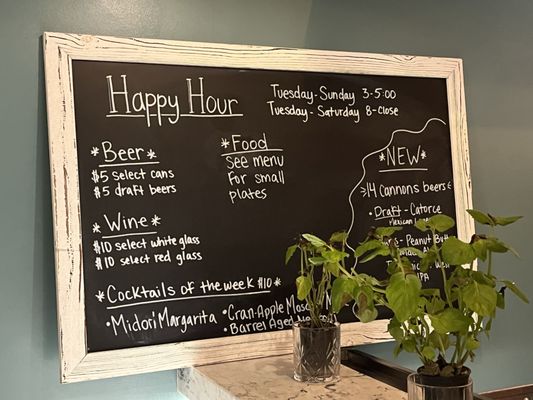 Happy Hour
Tuesday-Sunday 3-5:00
Tuesday-Saturday 8-Close
*Beer*
$5 select cans
$5 draft beers
*Food*
See menu
for small
plates
*Wine*
$10 select white glass
$10 select red glass
*Cocktails of the week $10*
•Midori Margarita
•Cran-Apple Mosc
•Barrel Aged
*NEW*
14 Cannons beers
•Draft - Catorce
Mexican
Peanut Butt